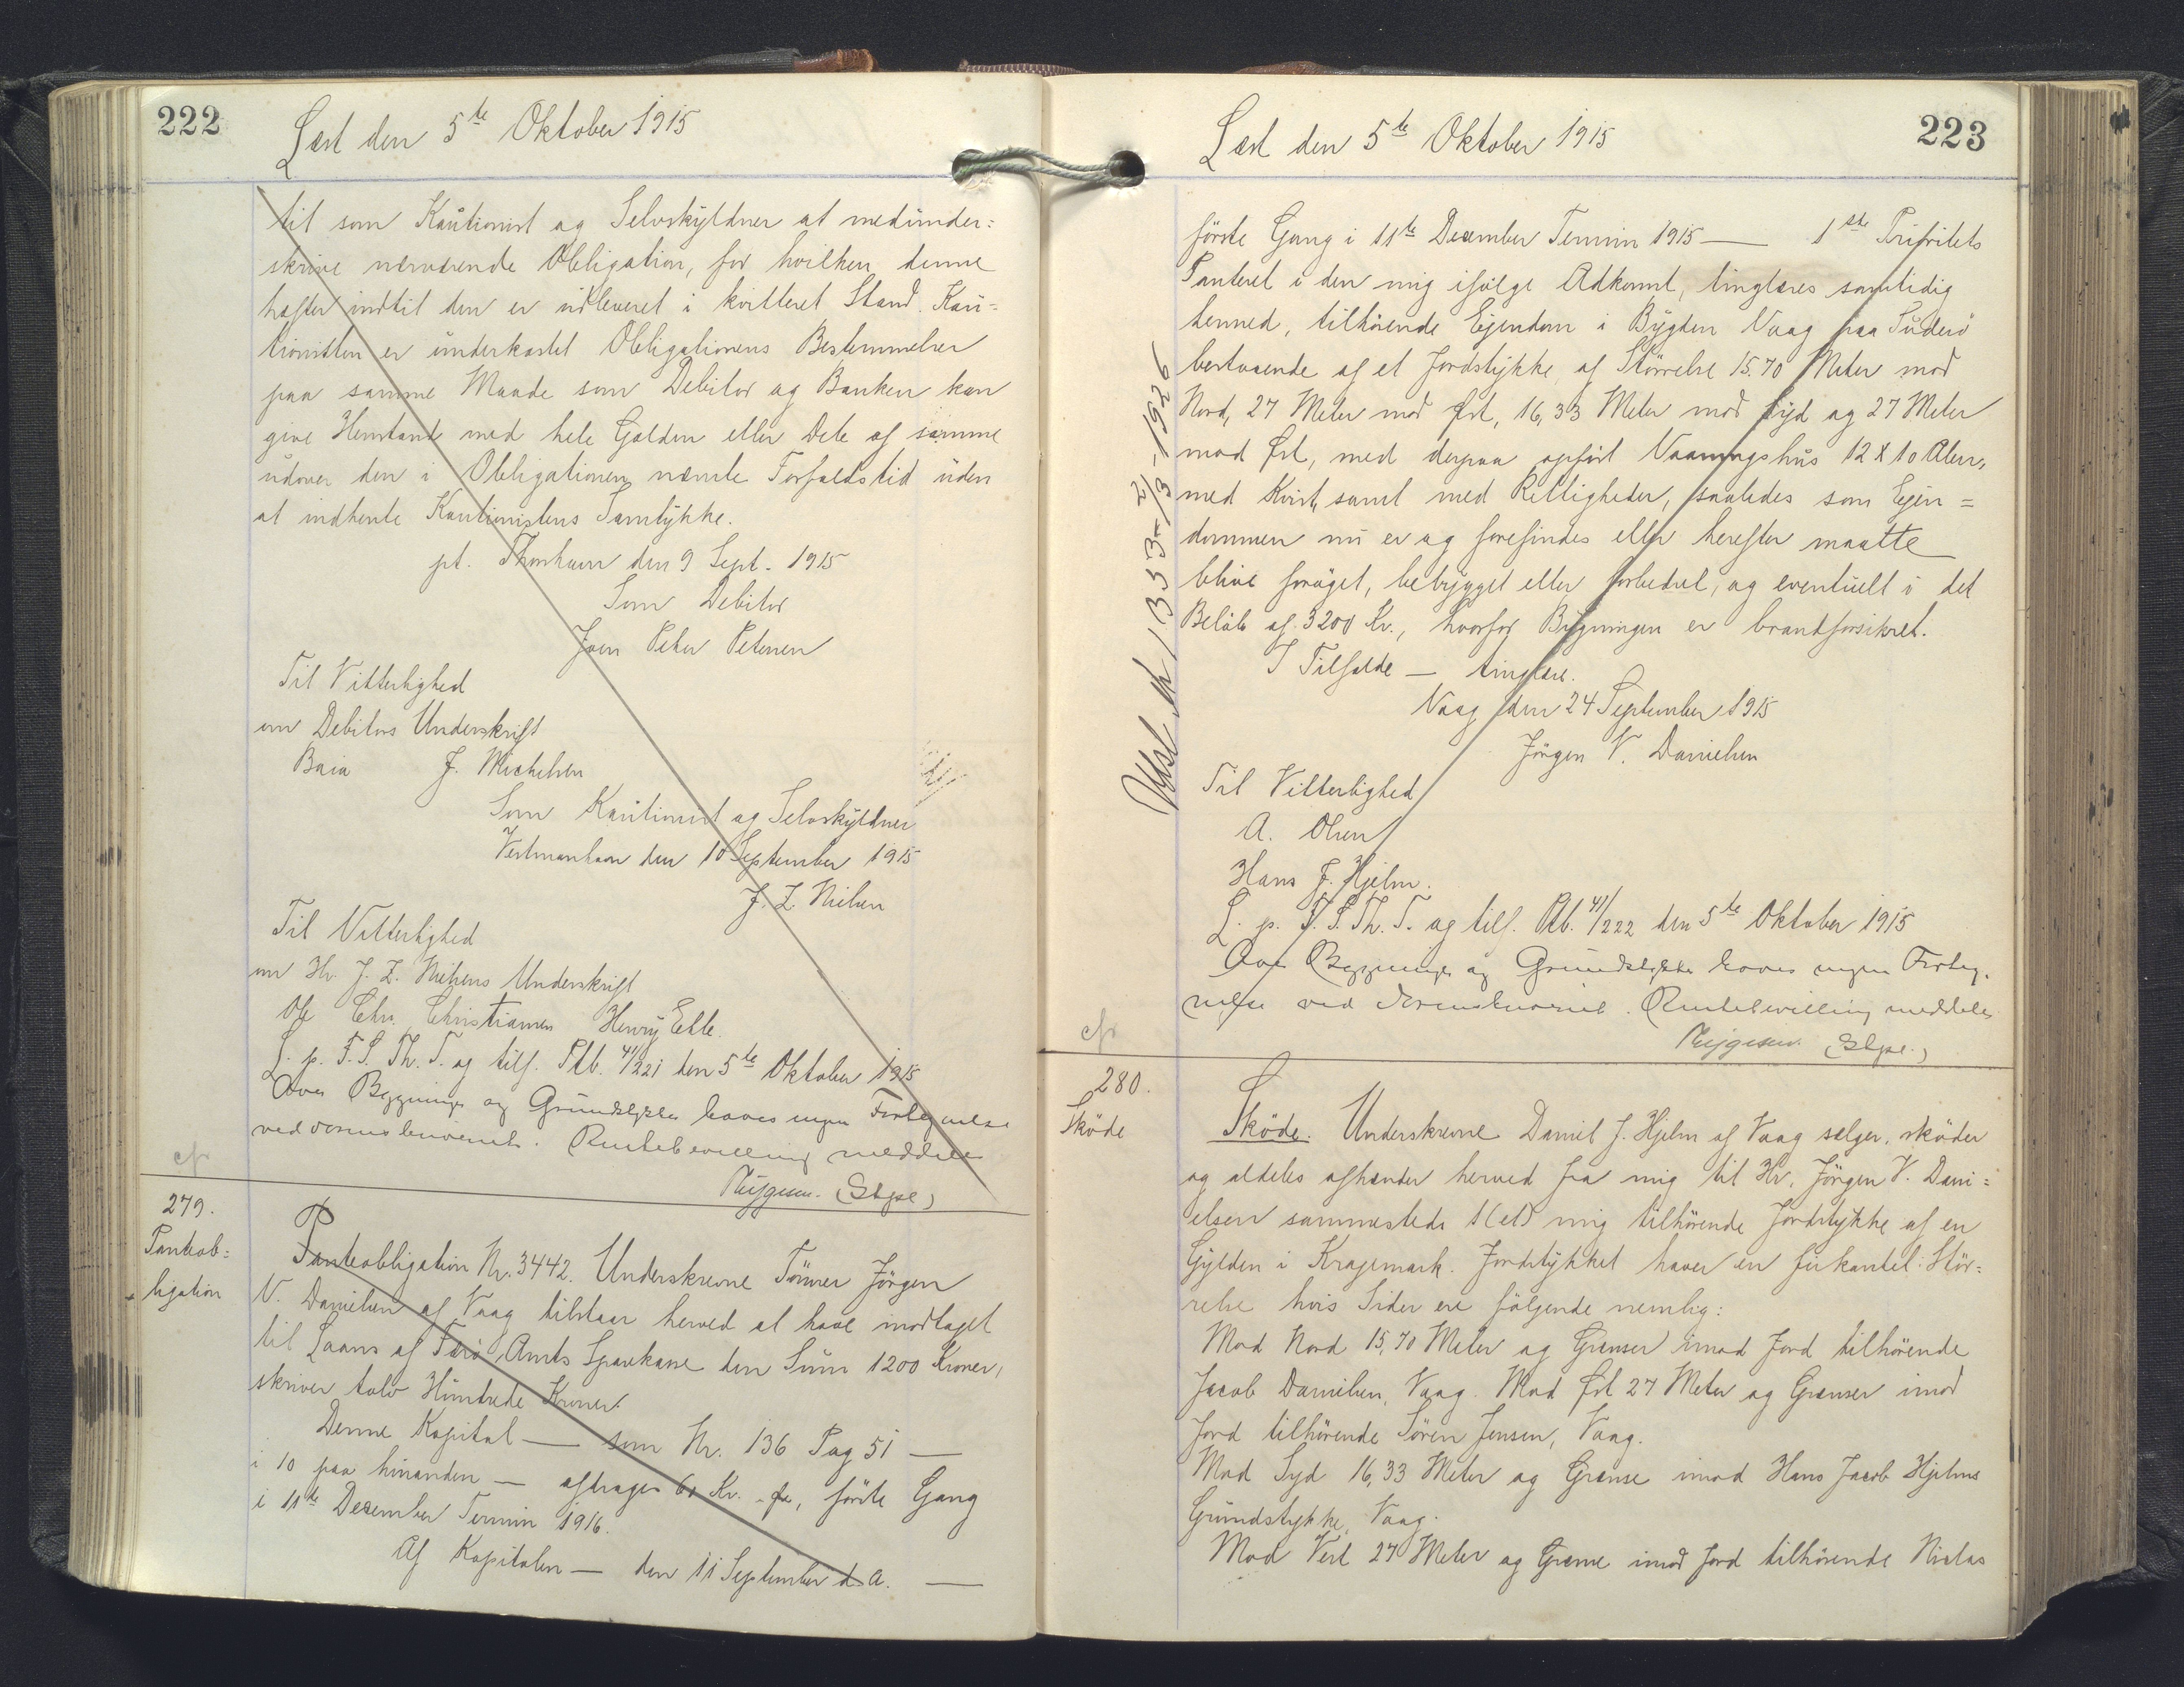 222
Læst den 5te Oktober 1915
til som Kautionist og Selvskyldner at medunder=
skrive nærværende Obligation, for hvilken denne
hæfter indtil den er udleveret i kvitteret Stand. Kau=
tionisten er underkastet Obligationens Bestemmelser
paa samme Maade som Debitor og Banken kan
give Henstand med hele Gælden eller Dele af samme
udover den i Obligationen nævnte Forfaldstid uden
at indhente Kautionistens Samtykke.
pt. Thorshavn den 9 Sept. 1915
Som Debitor
Joen Peter Petersen
Til Vitterlighed
om Debitors Underskrift
J. Michelsen
Som Kautionist og Selvskyldner
Vestmanhavn den 10 September 1915
J. Z. Nielsen
Til Vitterlighed
om Hr. J. Z. Nielsens Underskrift
Ole Chr. Christiansen Henry
L. p. F. S. Th. T. og tilf. Ptb. 41/221 den 5te Oktober 1915
Over Bygninger og Grundstykke haves ingen Forteg nelse
ved Sorenskriveriet. Rentebevilling meddeles
(Stpl)
279.
Panteob=
ligation
Panteobligation Nr. 3442. Underskrevne Tømrer Jörgen
V. Danielsen af Vaag tilstaar herved at have modtaget
til Laans af Færø Amts Sparekasse den Sum 1200 Kroner,
skriver tolv Hundrede Kroner.
Denne Kapital — som Nr. 136 Pag 51 —
i 10 paa hinanden — afdrages 60 Kr. , förste Gang
i 11te December Termin 1916.
Af Kapitalen — den 11 September d. A. —
223
Læst den 5te Oktober 1915
förste Gang i 11te December Termin 1915 — 1ste Prioritets
Panteret i den mig ifølge Adkomst, tinglæses samtidig
hermed, tilhörende Ejendom i Bygden Vaag paa Suderö
bestaaende af et Jordstykke af Störrelse 15.70 Meter mod
Nord, 27 Meter mod Øst, 16,33 Meter mod Syd og 27 Meter
mod Øst, med derpaa opfört Vaaningshus 12 X 10 Alen,
med Kvist, samt med Rettigheder, saaledes som Ejen=
dommen nu er og forefindes eller herefter maatte
blive foröget, bebygget eller forbedret, og eventuelt i det
Belöb af 3200 Kr., hvorfor Bygningen er brandforsikret.
I Tilfælde — tinglæse.
Vaag den 24 September 1915
Jörgen V. Danielsen
Til Vitterlighed
A. Olsen
Hans J. Hjelm.
L. p. F. S. Th. T. og tilf. Ptb. 41/222 den 5te Oktober 1915
Over Bygninger og Grundstykke haves ingen Forteg.
nelse ved Sorenskriveriet. Rentebevilling meddeles
(Stpl.)
280.
Sköde
Sköde. Underskrevne Daniel J. Hjelm af Vaag sælger, sköder
og aldeles afhænder herved fra mig til Hr. Jörgen V. Dani=
elsen sammesteds 1 (et) mig tilhörende Jordstykke af en
Gylden i Kragemark. Jordstykket haver en firkantet Stör=
relse hvis Sider ere fölgende nemlig:
Mod Nord 15,70 Meter og Grænser imod Jord tilhörende
Jacob Danielsen, Vaag. Mod Øst 27 Meter og Grænser imod
Jord tilhörende Sören Jensen, Vaag.
Mod Syd 16,33 Meter og Grænse imod Hans Jacob Hjelms
Grundstykke, Vaag.
Mod Vest 27 Meter og Grænse imod Jord tilhörende Niclas